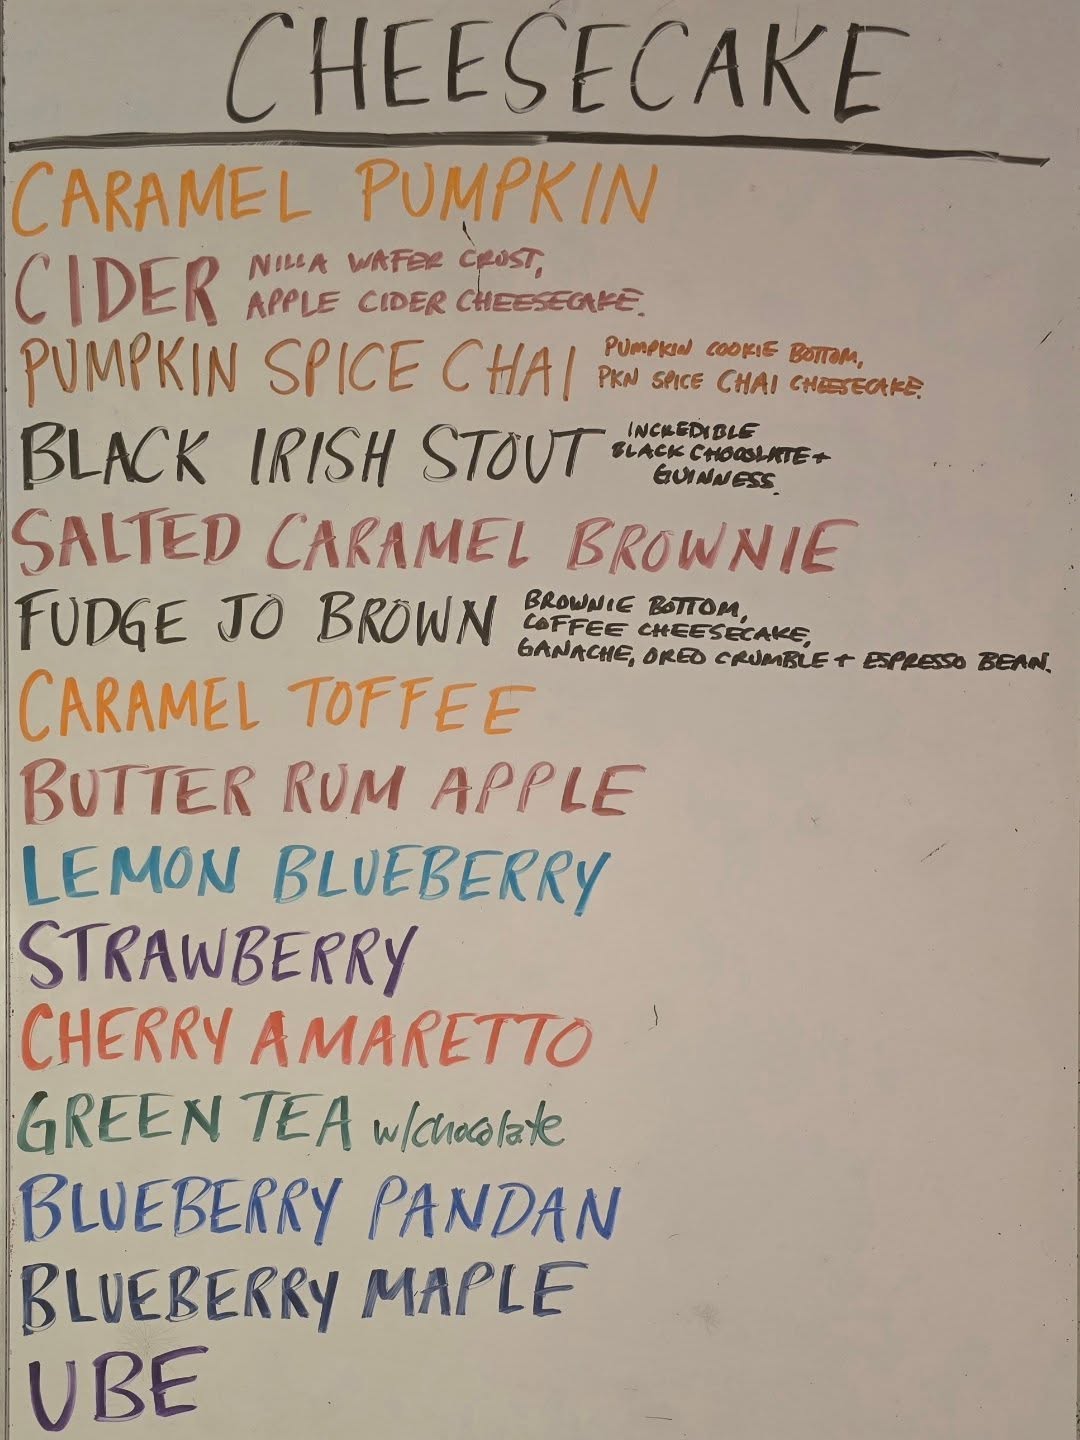 CHEESECAKE
CARAMEL PUMPKIN
CIDER NILLA WAFER CRUST,
APPLE CIDER CHEESECAKE.
PUMPKIN SPICE CHAI PUMPKIN COOKIE BOTTOM,
PKN SPICE CHAI CHEESECAKE.
BLACK IRISH STOUT INCREDIBLE
BLACK CHOCOLATE +
GUINNESS.
SALTED CARAMEL BROWNIE
FUDGE JO BROWN BROWNIE BOTTOM,
COFFEE CHEESECAKE,
GANACHE, OREO CRUMBLE + ESPRESSO BEAN.
CARAMEL TOFFEE
BUTTER RUM APPLE
LEMON BLUEBERRY
STRAWBERRY
CHERRY AMARETTO
GREEN TEA w/chocolate
BLUEBERRY PANDAN
BLUEBERRY MAPLE
UBE